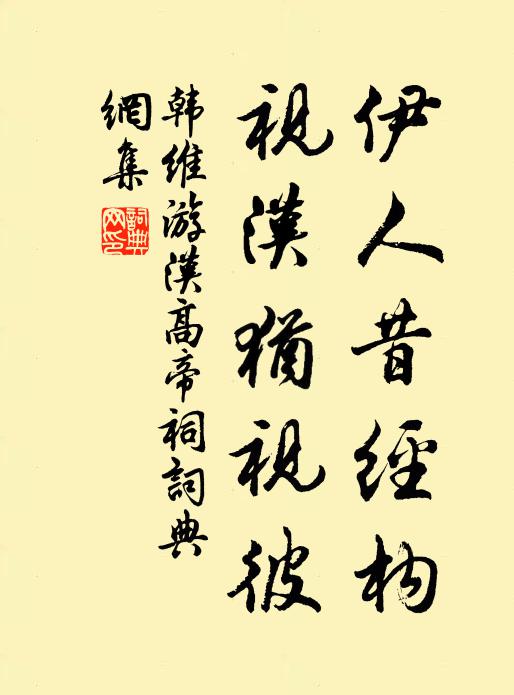 伊人昔經构
視漢猶視彼
韩維游漢高帝祠詞典
網集
詞典
网印